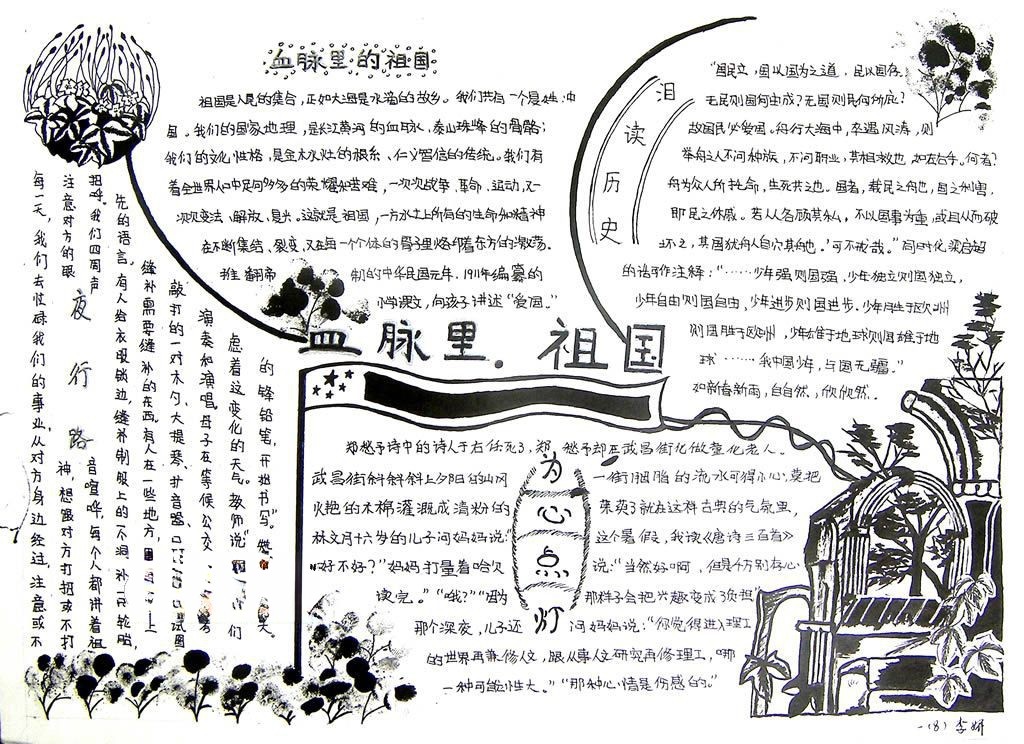 血脉里的祖国
祖国是人民的集合，正如大海是水滴的故乡。我们共有一个息姓：中
国。我们的国家地理，是长江黄河的血脉，泰山珠峰的骨骼；
我们的文化性格，是金木水灶的根系、仁义智信的传统。我们有
着全世界人口中足可多的英雄和苦难，一次次战争、革命、运动，又一
次次变法、解放、复兴。这就是祖国，一方水土上所有的生命和精神
在不断集结、裂变，又在每一个个体的骨子里烙印着东方的激荡。
推翻帝
制的中华民国元年，1911年编纂的
小学课文，向孩子讲述“爱国。”
泪读历史
“国民立，国以国为之道，民以国存。
无民则国何由成？无国则民何所庇？
故国民必爱国。舟行大海中，卒遇风涛，则
举舟之人不问种族，不问职业，其相救也，如左右手。何者？
舟为众人所托命，生死共之也。国者，载民之舟也，国之利害，
即民之休戚。若人各顾其私，不以国事为重，或且从而破
坏之，其国犹舟人自穴其舟也。可不戒哉。”同时代梁启超
的谁可作注解：“……少年强则国强，少年独立则国独立，
少年自由则国自由，少年进步则国进步，少年胜于欧洲
则国胜于欧洲，少年雄于地球则国雄于地
球……我中国少年，与国无疆。”
如新春新雨，自自然，欣欣然。
血脉里.祖国
夜行路
每一天，我们去忙碌我们的事业，从对方身边经过，注意或不
注意对方的眼
神，想跟对方打招呼或不打
招呼。我们四周声
音喧哗，每个人都讲着祖
先的语言。有人给衣服锁边，缝补制服上的一个洞，补一只轮胎，
缝补需要缝补的东西。有人在一些地方，
敲打的一对木勺、大提琴、扩音器、
演奏和演唱。母子在等候公交
虑着这变化的天气。教师说
们
的锋铅笔，开始书写。
为心点灯
郑愁予诗中的诗人于右任死了，郑
愁予却在武昌街化做童化老人。
武昌街斜斜斜上夕阳的山冈
一街胭脂的流水可得小心，莫把
火艳的木棉灌溉成清粉的
茱萸了就在这样古典的气氛里，
林文月十六岁的儿子问妈妈说：
这个暑假，我读《唐诗三百首》
好不好？”妈妈打量着哈欠
说：“当然好啊，但是千万别存心
读完。”“哦？”“因为
那样子会把兴趣变成了负担
那个深夜，儿子还
问妈妈说：“你觉得进入理工
的世界再兼修人文，跟从事人文研究再修理工，哪
一种可能性大。”“那种心情是伤感的。”
一(8) 李妍